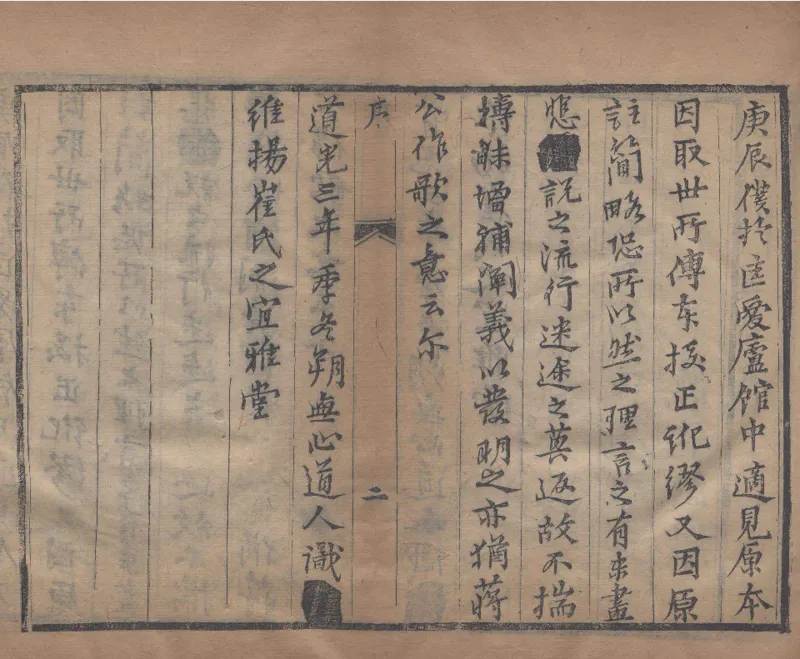 庚辰僕於匡愛廬館中適見原本
因取世所傳本挍正紕繆又因原
註簡略恐所以然之理言之有未盡
悲說之流行迷途之莫返故不揣
摶昧增補闡義以發明之亦猶蔣
公作歌之意云尔
序
二
道光三年季冬朔無心道人識
維揚崔氏之宜雅堂